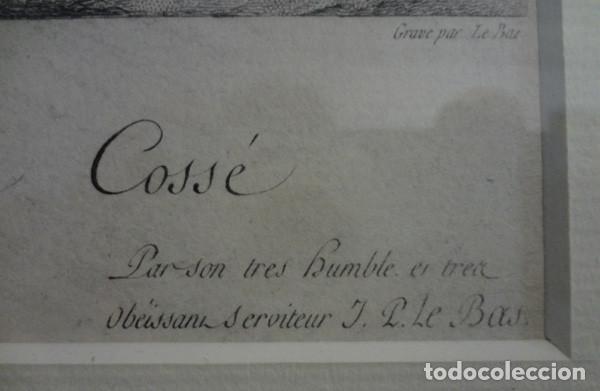 Gravé par Le Bas
Cossé
Par son tres humble et tres
Obëissant Serviteur J. P. Le Bas.
todocoleccion
todocoleccion.net